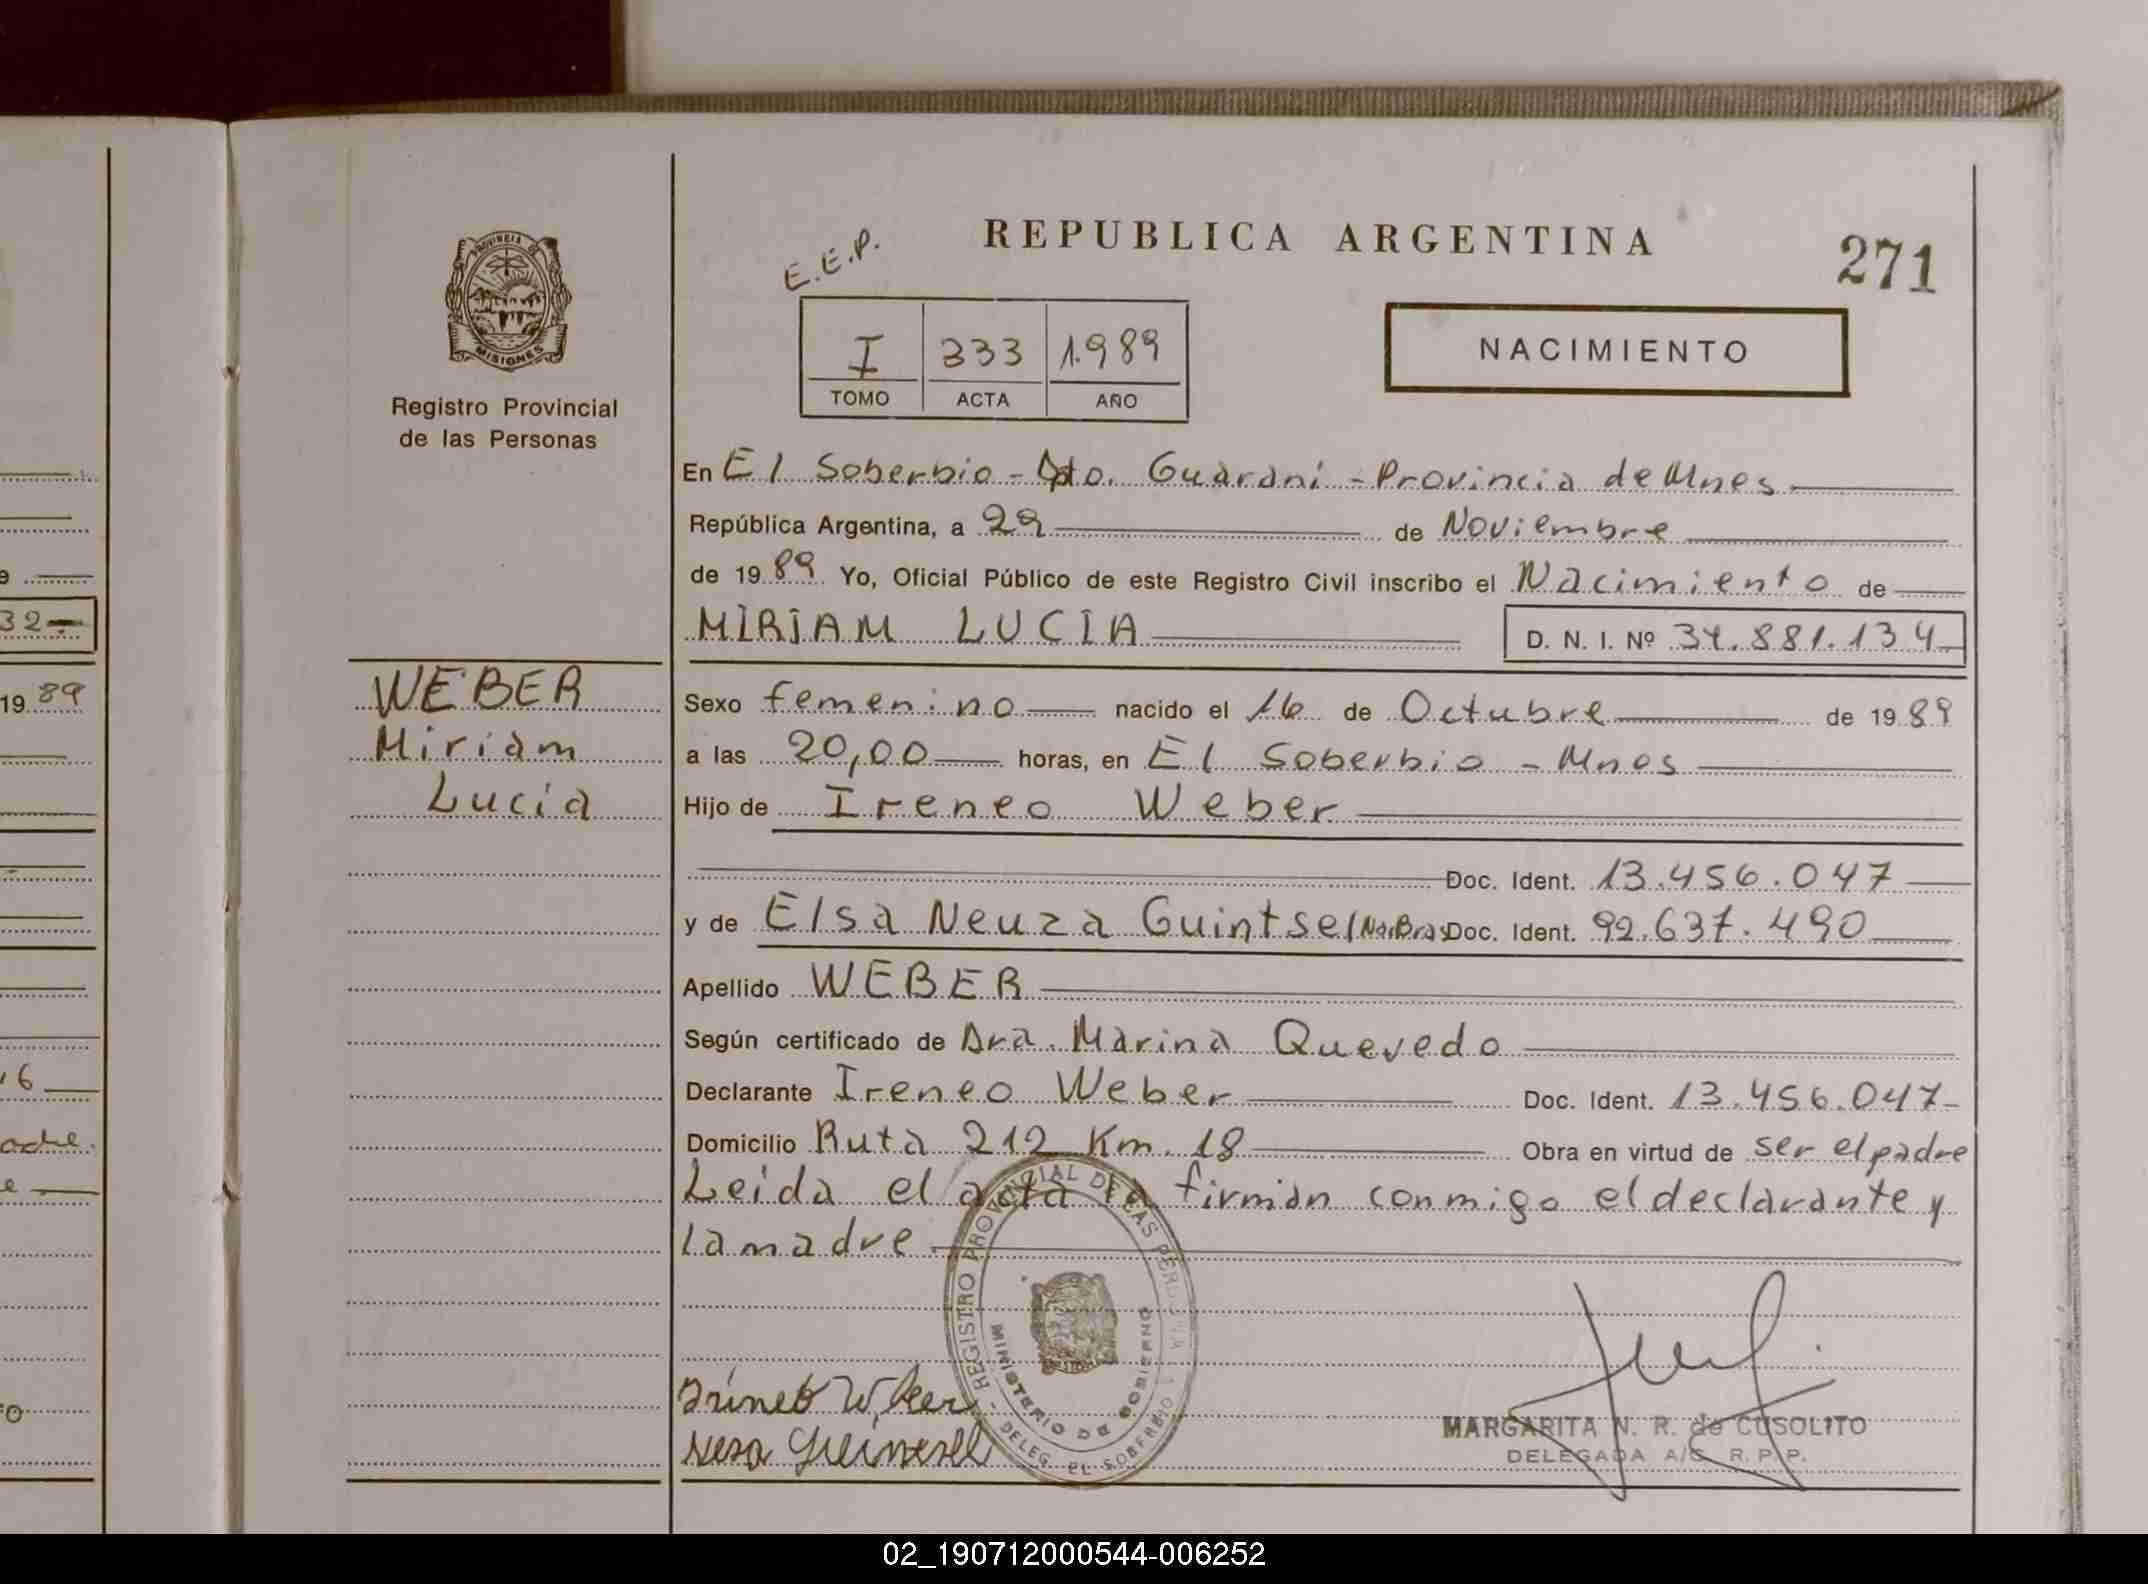 REPUBLICA ARGENTINA
271
E.E.P.
I 333 1.989
TOMO ACTA AÑO
NACIMIENTO
PROVINCIA DE
MISIONES
Registro Provincial
de las Personas
En El Soberbio - Dpto. Guaraní - Provincia de Mnes.
República Argentina, a 29 de Noviembre
de 1989 Yo, Oficial Público de este Registro Civil inscribo el Nacimiento de
MIRIAM LUCIA D. N. I. Nº 34.881.134
WEBER
Miriam
Lucia
Sexo femenino nacido el 16 de Octubre de 1989
a las 20,00 horas, en El Soberbio - Mnes
Hijo de Ireneo Weber
Doc. Ident. 13.456.047
y de Elsa Neuza Guintsel (Nac. Bras) Doc. Ident. 92.637.490
Apellido WEBER
Según certificado de Dra. Marina Quevedo
Declarante Ireneo Weber Doc. Ident. 13.456.047
Domicilio Ruta 212 Km. 18 Obra en virtud de ser el padre
Leida el acta la firman conmigo el declarante y
la madre
REGISTRO PROVINCIAL DE LAS PERSONAS
MINISTERIO DE GOBIERNO
DELEG. EL SOBERBIO
MARGARITA N. R. de CUSOLITO
DELEGADA A/C R.P.P.
32
1989
16
02_190712000544-006252